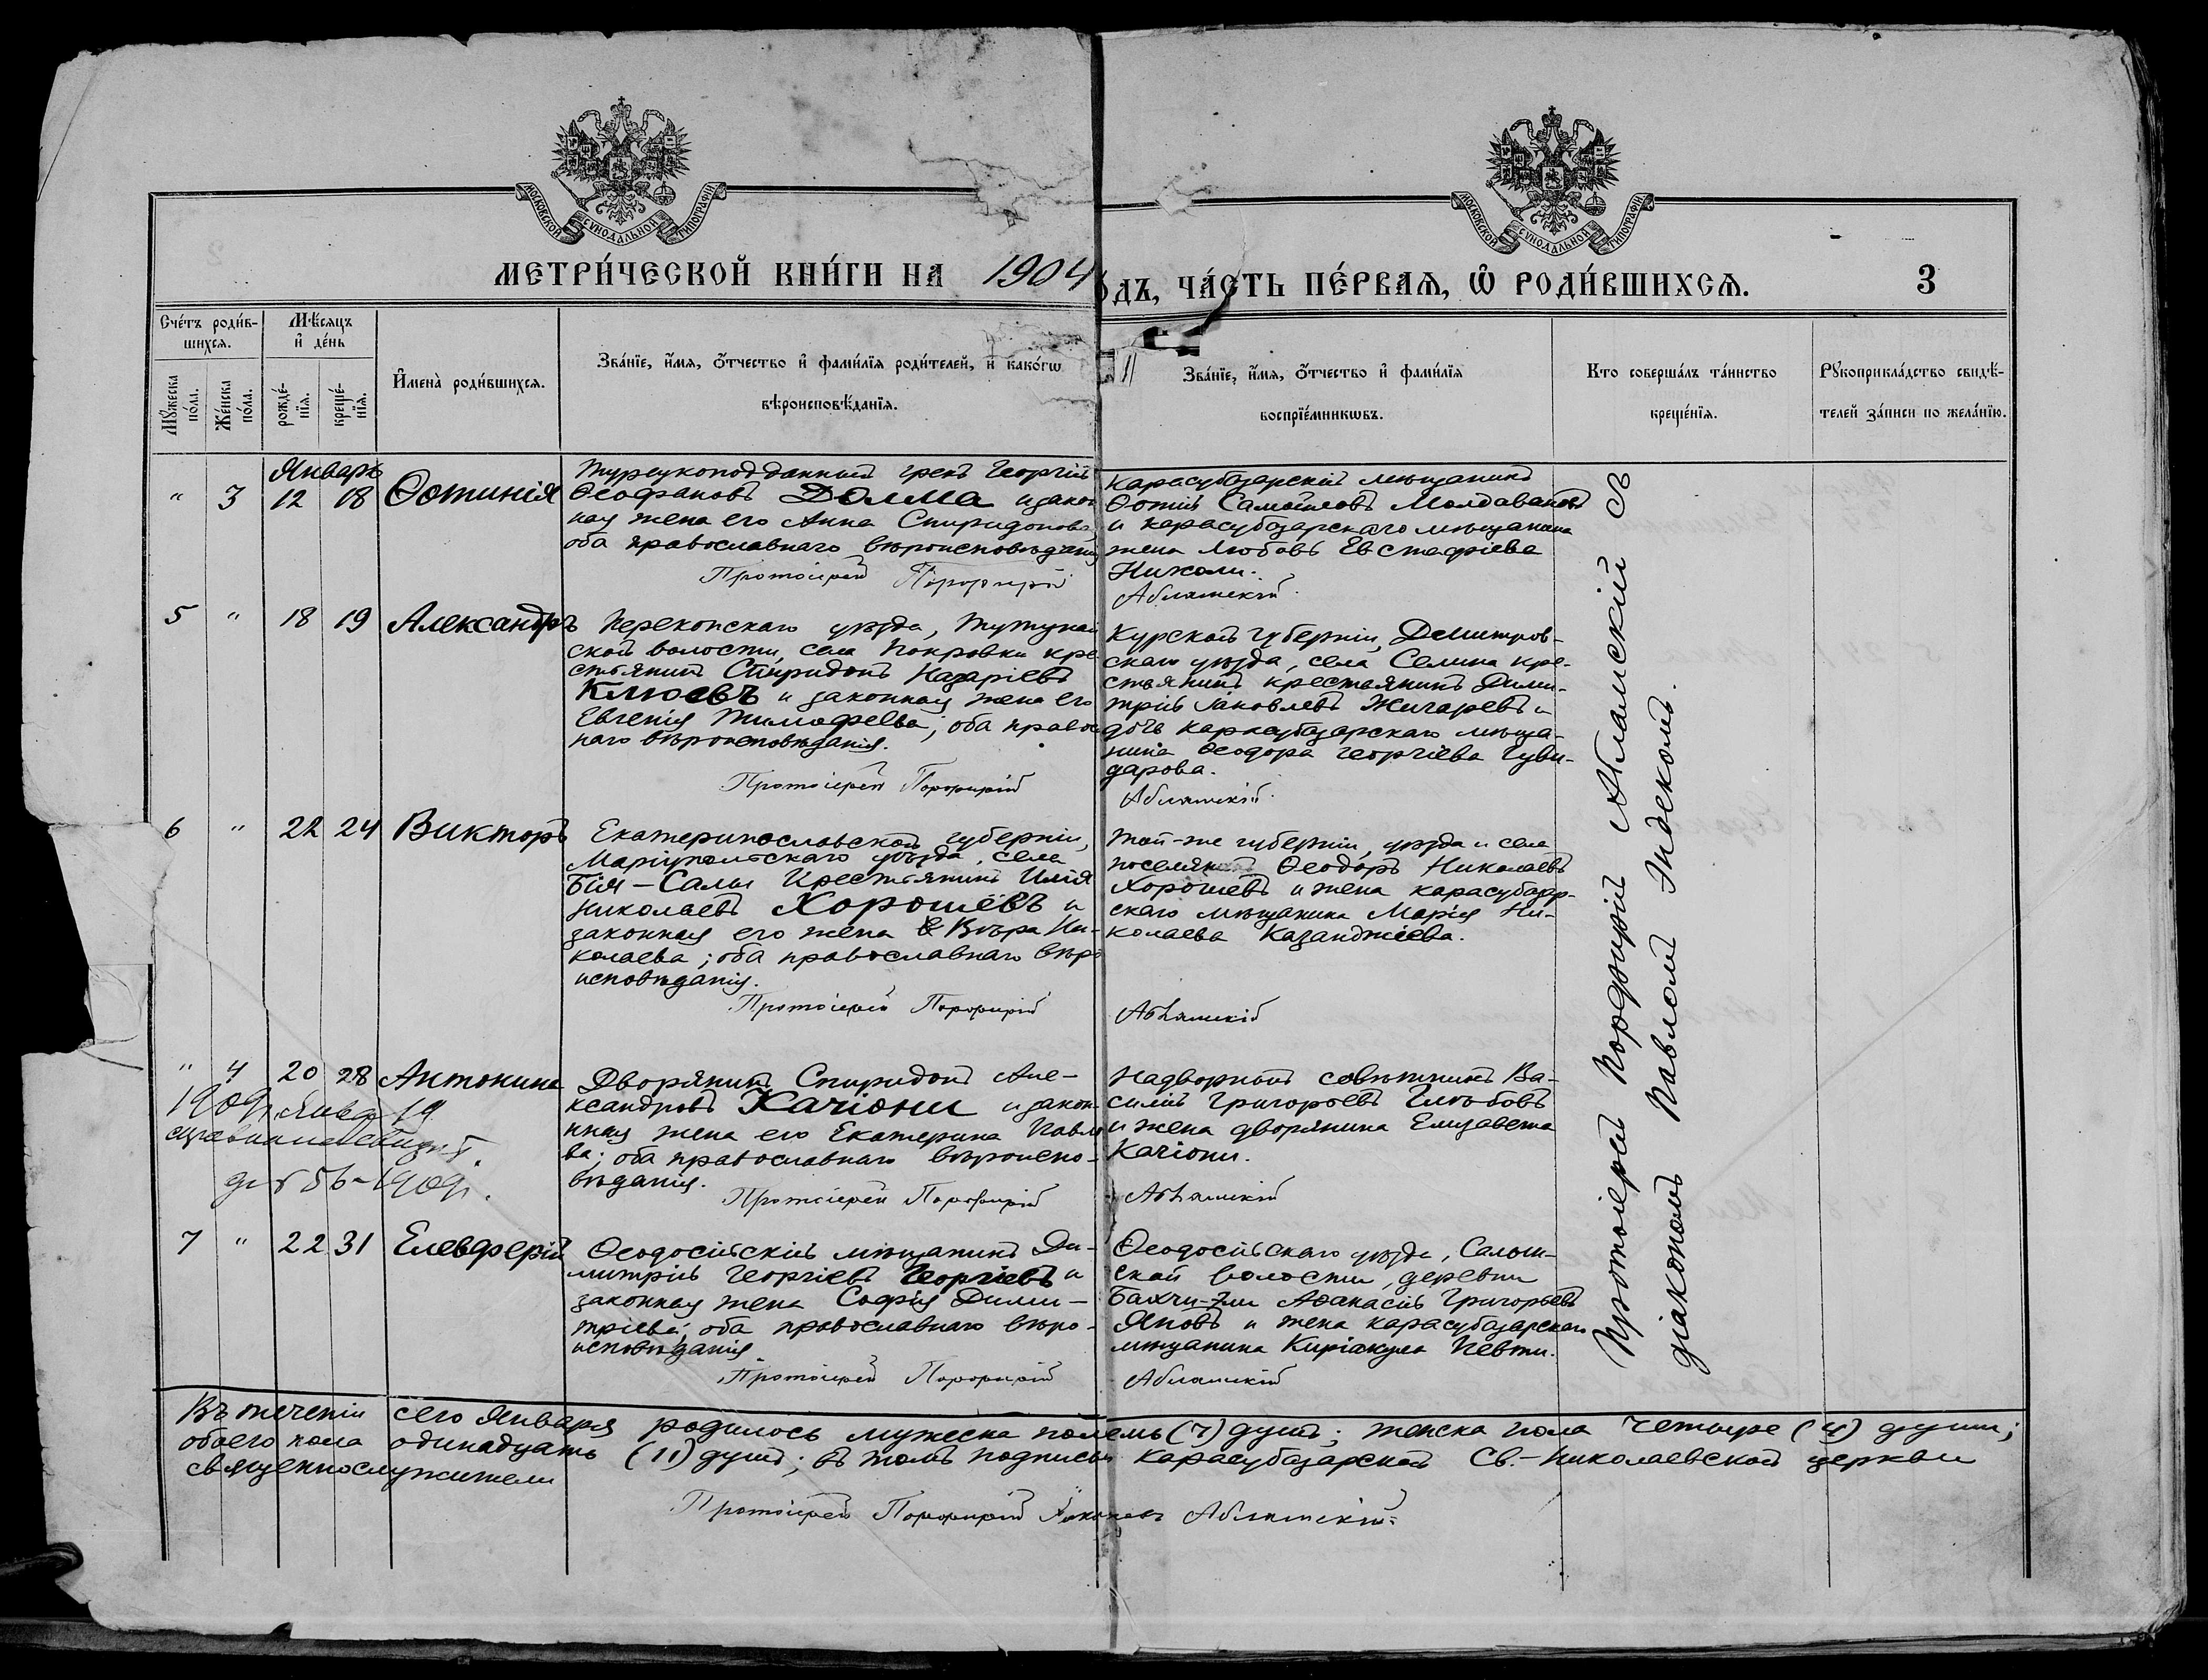 МОСКОВСКОЙ СѴНОДАЛЬНОЙ ТИПОГРАФІИ
МОСКОВСКОЙ СѴНОДАЛЬНОЙ ТИПОГРАФІИ
МЕТРИ́ЧЕСКОЙ КНИ́ГИ НА 1904
О́ДЪ, ЧА́СТЬ ПЕ́РВАѦ, Ѽ РОДИ́ВШИХСѦ. 3
Сче́тъ роди́в-
шихсѧ.
Мѣ́сѧцъ
и҆ де́нь
Мꙋ́жеска
по́ла.
Же́нска
по́ла.
рожде́-
нїѧ.
креще́-
нїѧ.
И҆мена̀ роди́вшихсѧ.
Зва́нїе, и҆́мѧ, ѻ҆́тчество и҆ фами́лїѧ роди́телей, и҆ како́гѡ
вѣроисповѣ́данїѧ.
Зва́нїе, и҆́мѧ, ѻ҆́тчество и҆ фами́лїѧ
воспрїе́мникѡвъ.
Кто соверша́лъ та́инство
креще́нїѧ.
Рꙋкоприкла́дство свидѣ́-
телей за́писи по жела́нїю.
Январь
" 3 12 18 Ѳотинія
Турецкоподданный грекъ Георгій
Ѳеофановъ Долма и закон
ная жена его Анна Спиридонова,
оба православнаго вѣроисповѣданія
Протоіерей Порфирій
Карасубазарскій мѣщанинъ
Ѳотій Самойловъ Молдавановъ
и карасубазарскаго мѣщанина
жена Любовь Евстафіева
Николи.
Абламскій.
5 " 18 19 Александръ
Перекопскаго уѣзда, Тутунай
ской волости, села Покровки кре
стьянинъ Спиридонъ Назаріевъ
Клюевъ и законная жена его
Евгенія Тимофеева; оба правос
наго вѣроисповѣданія.
Протоіерей Порфирій
Курской губерніи, Демитров-
скаго уѣзда, села Селина кре-
стьянинъ крестьянинъ Дими-
трій Іаковлевъ Жигаревъ и
дочь карасубазарскаго мѣща-
нина Ѳеодора Георгіева Чуби-
дарова.
Абламскій.
6 " 22 24 Викторъ
Екатеринославской губерніи,
Маріупольскаго уѣзда, села
Бія-Салы Крестьянинъ Илія
Николаевъ Хорошевъ и
законная его жена Вѣра Ни-
колаева; оба православнаго вѣро
исповѣданія.
Протоіерей Порфирій
Той-же губерніи, уѣзда и села
поселянинъ Ѳеодоръ Николаевъ
Хорошевъ и жена карасубазар-
скаго мѣщанина Марія Ни-
колаева Казанджіева.
Абламскій
" 4 20 28 Антонина
1909 г. Янва 19
Дворянинъ Спиридонъ Але-
ксандровъ Качіони и закон-
нная жена его Екатерина Павло
ва; оба православнаго вѣроиспо-
вѣданія.
Протоіерей Порфирій
Надворный совѣтникъ Ва-
силій Григорьевъ Глѣбовъ
и жена дворянина Елизавета
Качіони.
Абламскій
7 " 22 31 Елевферій
Ѳеодосійскій мѣщанинъ Ди-
митрій Георгіевъ Георгіевъ и
законная жена Софія Дими-
тріева; оба православнаго вѣро-
исповѣданія.
Протоіерей Порфирій
Ѳеодосійскаго уѣзда, Салын-
ской волости, деревни
Бахчи-Эли Аѳанасій Григорьевъ
Яновъ и жена карасубазарскаго
мѣщанина Киріакула Певти.
Абламскій
Протоіерей Порфирій Абламскій съ
діакономъ Павломъ Индекомъ.
Въ теченіи сего Января родилось мужеска полемъ (7) душъ; женска пола четыре (4) души;
обоего пола одинадцать (11) душъ; въ томъ подписомъ Карасубазарской Св.-Николаевской церкви
священнослужители
Протоіерей Порфирій Абламскій.